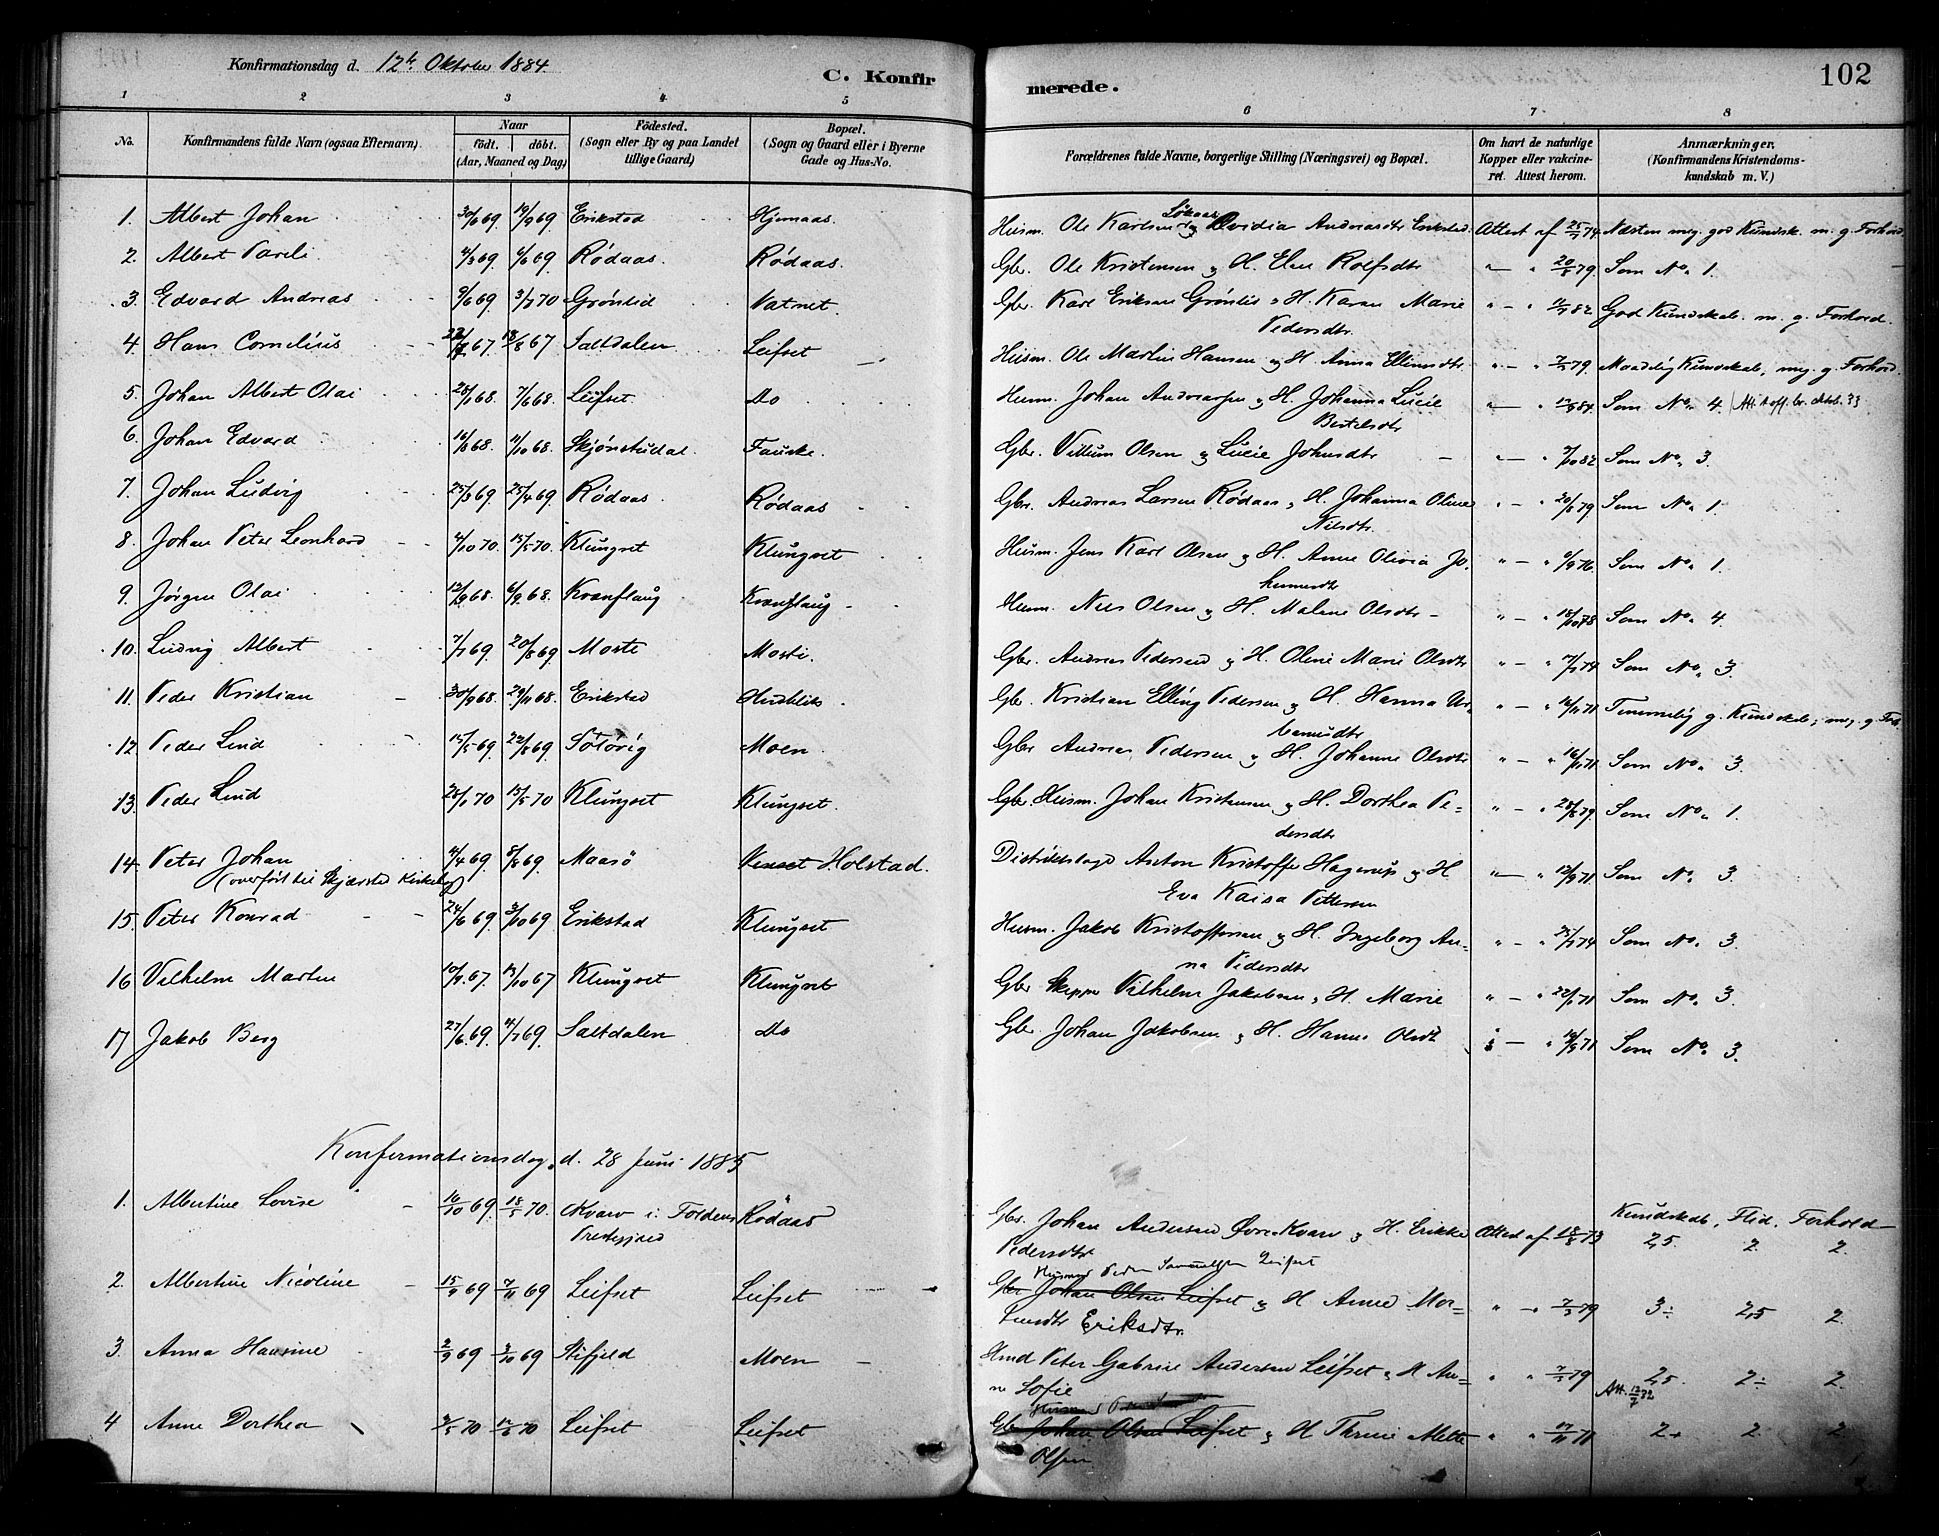 Konfirmationsdag d. 12te Oktober 1884.
C. Konfirmerede.
102
1 2 3 4 5 6 7 8
No.
Konfirmandens fulde Navn (ogsaa Efternavn).
Naar
födt. döbt.
(Aar, Maaned og Dag)
Födested.
(Sogn eller By og paa Landet
tillige Gaard)
Bopæl.
(Sogn og Gaard eller i Byerne
Gade og Hus-No.
Forældrenes fulde Navne, borgerlige Stilling (Næringsvei) og Bopæl.
Om havt de naturlige
Kopper eller vakcine-
ret. Attest herom.
Anmærkninger.
(Konfirmandens Kristendoms-
kundskab m. V.)
1. Albert Johan 30/6 69 19/9 69 Erikstad Husm. Ole Karlsen og Andreasdtr Erikstad Attest af 25/7 74 Næsten meg. god Kundsk. m. g. Forhold
2. Albert Pareli 4/3 69 6/6 69 Rödaas. Rödaas. Gbr. Ole Kristensen & H. Elen Rolfsdtr 20/5 79. Som No. 1.
3. Edvard Andreas 9/6 69 3/7 70 Grönlid Vatnet. Gbr. Karl Eriksen Grönlid & H. Karen Marie
Pedersdtr. 82 God Kundskab. m. g. Forhold.
4. Hans Cornelius 67 18/8 67 Saltdalen Leifset Husm. Ole Martin Hansen og H. Anna Ellensdtr 7/5 79. Maadelig Kundskab, meg. g. Forhold.
5. Johan Albert Olai 28/1 68. 7/6 68. Leifset Do Husm. Johan Andreassen & H. Johanna Lucie
Bertelsdtr 84. Som No. 4.
6. Johan Edvard 16/8 68. 11/10 68. Skjönstudal Fauske. Gbr. Villum Olsen og Lucie Johnsdtr 7/10 82 Som No. 3.
7. Johan Ludvig 25/3 69 25/4 69. Rödaas. Rödaas Gbr. Andreas Larsen Rödaas & H. Johanna Oline
Nilsdtr. 20/5 79 Som No. 1
8. Johan Peter Leonhard 4/10 70. 15/5 70. Klungset Klungset Husm. Jens Karl Olsen & H. Anne Olivia Jo-
hannesdtr 6/9 76. Som No. 1.
9. Jörgen Olai 12/9 68. 6/9 68. Kvænflaug Kvænflaug Husm. Nils Olsen & H. Malene Olsdtr 18/10 78 Som No. 4.
10. Ludvig Albert 7/7 69. 20/8 69 Moste Mosti. Gbr. Andreas Pedersen & H. Oline Marie Olsdtr 74 Som No. 3.
11. Peder Kristian 30/9 68. 29/11 68. Erikstad Gbr. Kristian Elling Pedersen & H. Hanna 16/11 71 Temmelig g. Kundskab, meg. g. Forh.
12 Peder Lund 15/5 69. 22/8 69. Sötvig Moen. Gbr. Andreas Pedersen & H. Johanne Olsdtr 16/11 71. Som No. 3.
13. Peder Lund 25/1 70 15/5 70 Klungset Klungset. Gbr. Husm. Johan Kristensen & H. Dorthea Pe-
dersdtr 28/8 79. Som No. 1.
14. Peter Johan 4/4 69. 8/8 69. Maasö Holstad. Distriktslæge Anton Kristoffer Hagerup & H.
(overfört til Skjærstad Kirkebog) Eva Kaisa Pettersen 12/9 71. Som No. 3.
15. Peter Konrad 24/6 69 3/10 69 Erikstad Klungset Husm. Jakob Kristoffersen & H. Ingeborg An-
na Pedersdtr 25/7 74 Som No. 3.
16 Vilhelm Martin 10/9 67. 13/10 67 Klungset Klungset Gbr Skipper Vilhelm Jakobsen & H. Marie 22/1 71 Som No. 3.
17 Jakob Berg 27/6 69. 4/7 69. Saltdalen Do Gbr. Johan Jakobsen & H. Hanna Olsdt 71 Som No. 3.
Konfirmationsdag d. 28 Juni 1885
Kundskab. Flid. Forhold
1. Albertine Lovise 16/10 69. 18/5 70. Kvarv i Foldens Rödaas Gbr. Johan Andersen Övre-Kvarv & H. Erikke Attest af 18/8 73 2,5. 2. 2.
Præstegjæld Pedersdtr
Husmd Peder Samuelsen Leifset
2. Albertine Nicoline 15/9 69 7/11 69 Leifset Leifset Gbr Johan Olsen Leifset & H Anne Mor-
tensdtr Eriksdtr. 7/5 79 3÷ 2,5 2.
3. Anna Hansine 2/9 69 3/10 69 Stifjeld Moen Hmd Peter Gabriel Andersen Leifset & H An-
ne Sofie 7/5 79 2,5. 2÷ 2.
4 Anne Dorthea 2/5 70 12/6 70 Leifset Leifset Gbr Johan Olsen Leifset & H Thrine Mette
Olsen 17/11 71 2+ 2. 2